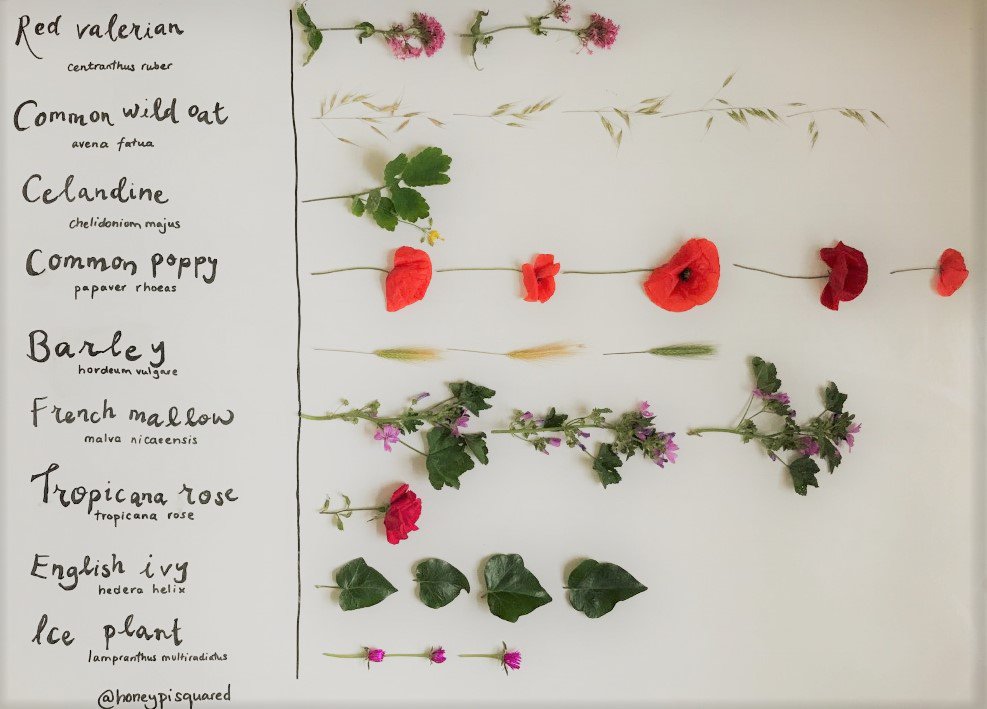 Red valerian
centranthus ruber
Common wild oat
avena fatua
Celandine
chelidoniom majus
Common poppy
papaver rhoeas
Barley
hordeum vulgare
French mallow
malva nicaeensis
Tropicana rose
tropicana rose
English ivy
hedera helix
Ice plant
lampranthus multiradiatus
@honeypisquared